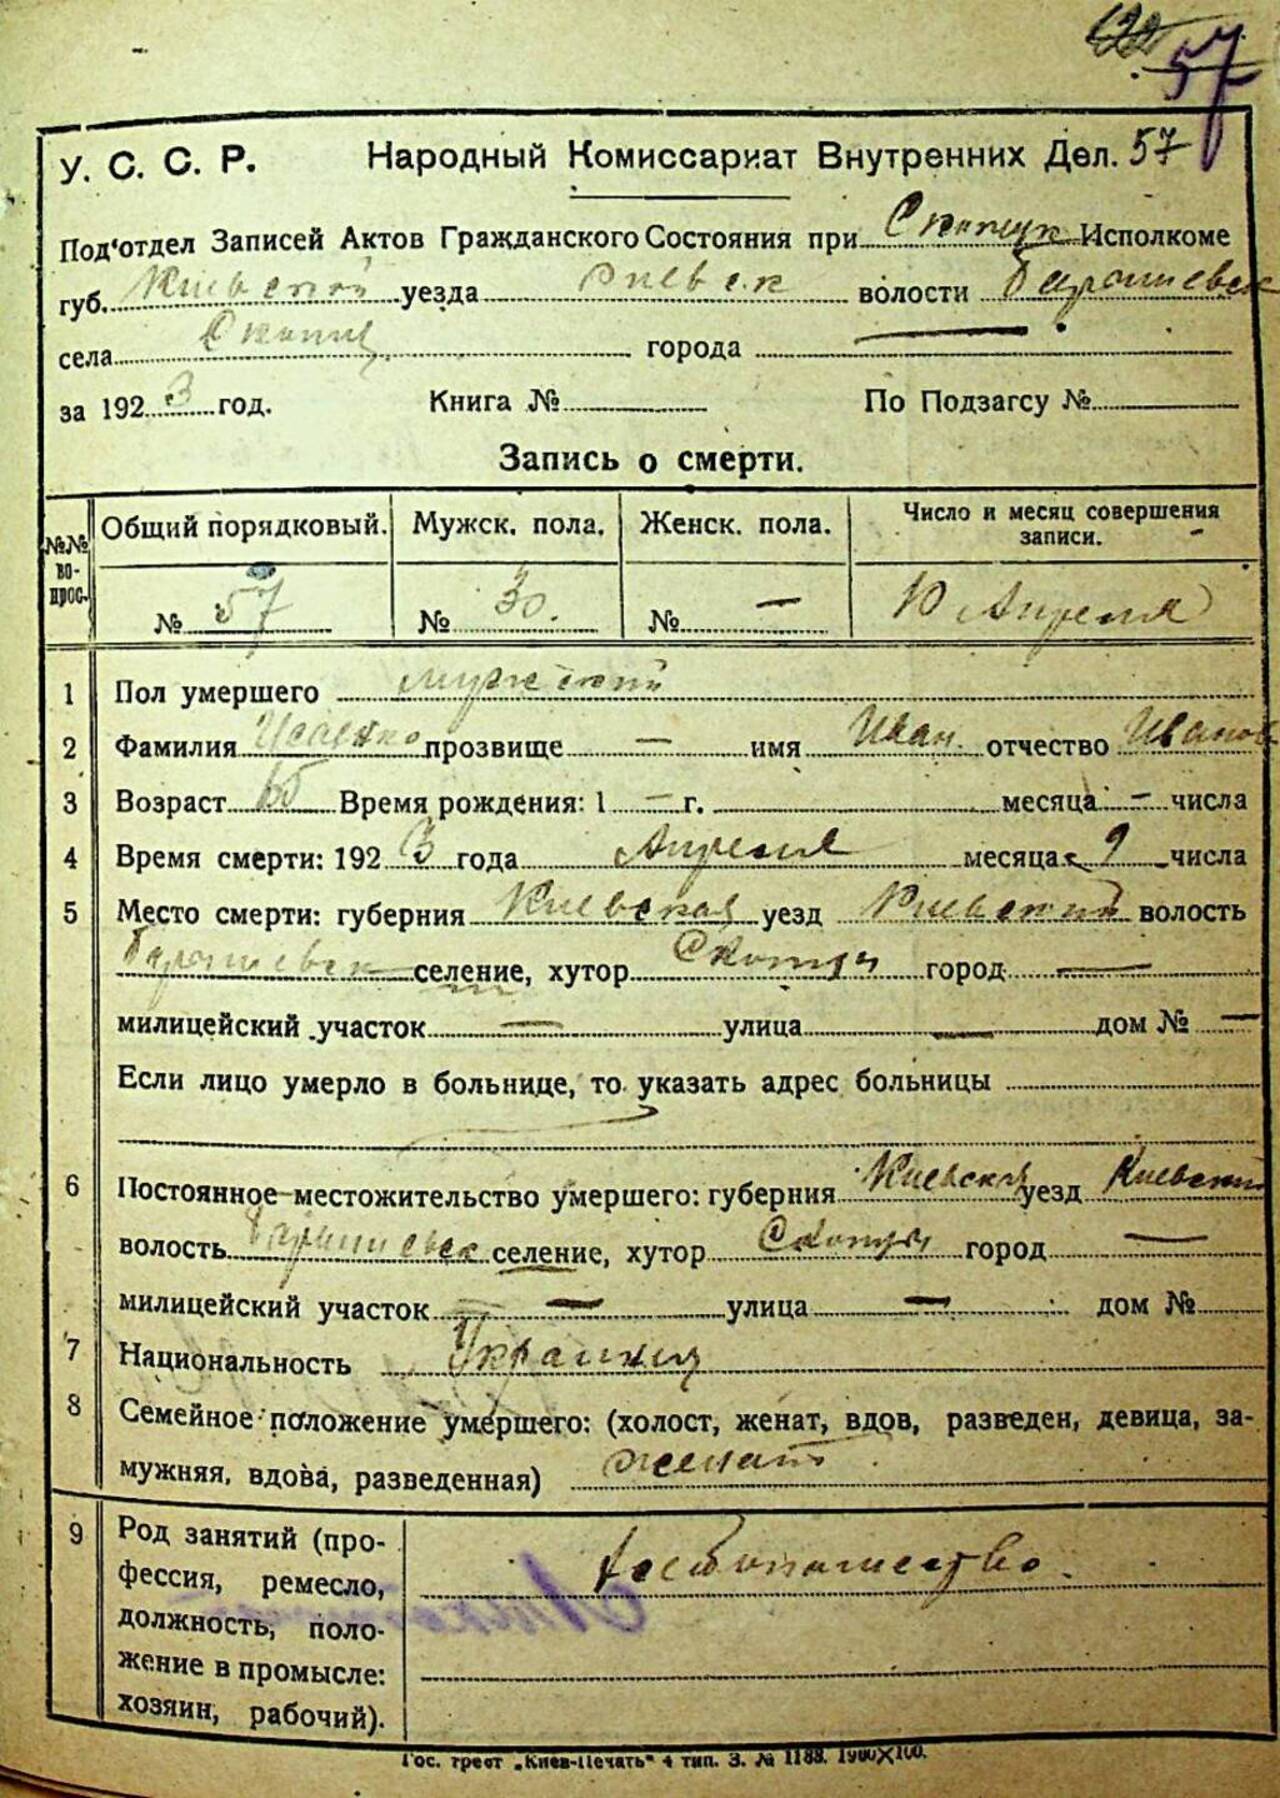 57
У. С. С. Р. Народный Комиссариат Внутренних Дел. 57
Под'отдел Записей Актов Гражданского Состояния при Исполкоме
губ. Киевской уезда Киевск волости
села города —
за 1923 год. Книга № По Подзагсу №
Запись о смерти.
№№ вопрос. Общий порядковый. Мужск. пола. Женск. пола. Число и месяц совершения записи.
№ 57 № 30. № — 10 Апреля
1 Пол умершего мужской
2 Фамилия Исаенко прозвище — имя Иван отчество Иванов
3 Возраст Время рождения: 1 — г. месяца — числа
4 Время смерти: 1923 года Апреля месяца 9 числа
5 Место смерти: губерния Киевская уезд Киевский волость
селение, хутор город —
милицейский участок — улица — дом № —
Если лицо умерло в больнице, то указать адрес больницы
6 Постоянное местожительство умершего: губерния Киевская уезд Киевский
волость селение, хутор город —
милицейский участок — улица — дом №
7 Национальность
8 Семейное положение умершего: (холост, женат, вдов, разведен, девица, за-
мужняя, вдова, разведенная) женат
9 Род занятий (про-
фессия, ремесло,
должность, поло-
жение в промысле:
хозяин, рабочий).
Гос. трест „Киев-Печать" 4 тип. З. № 1188. 1900×100.